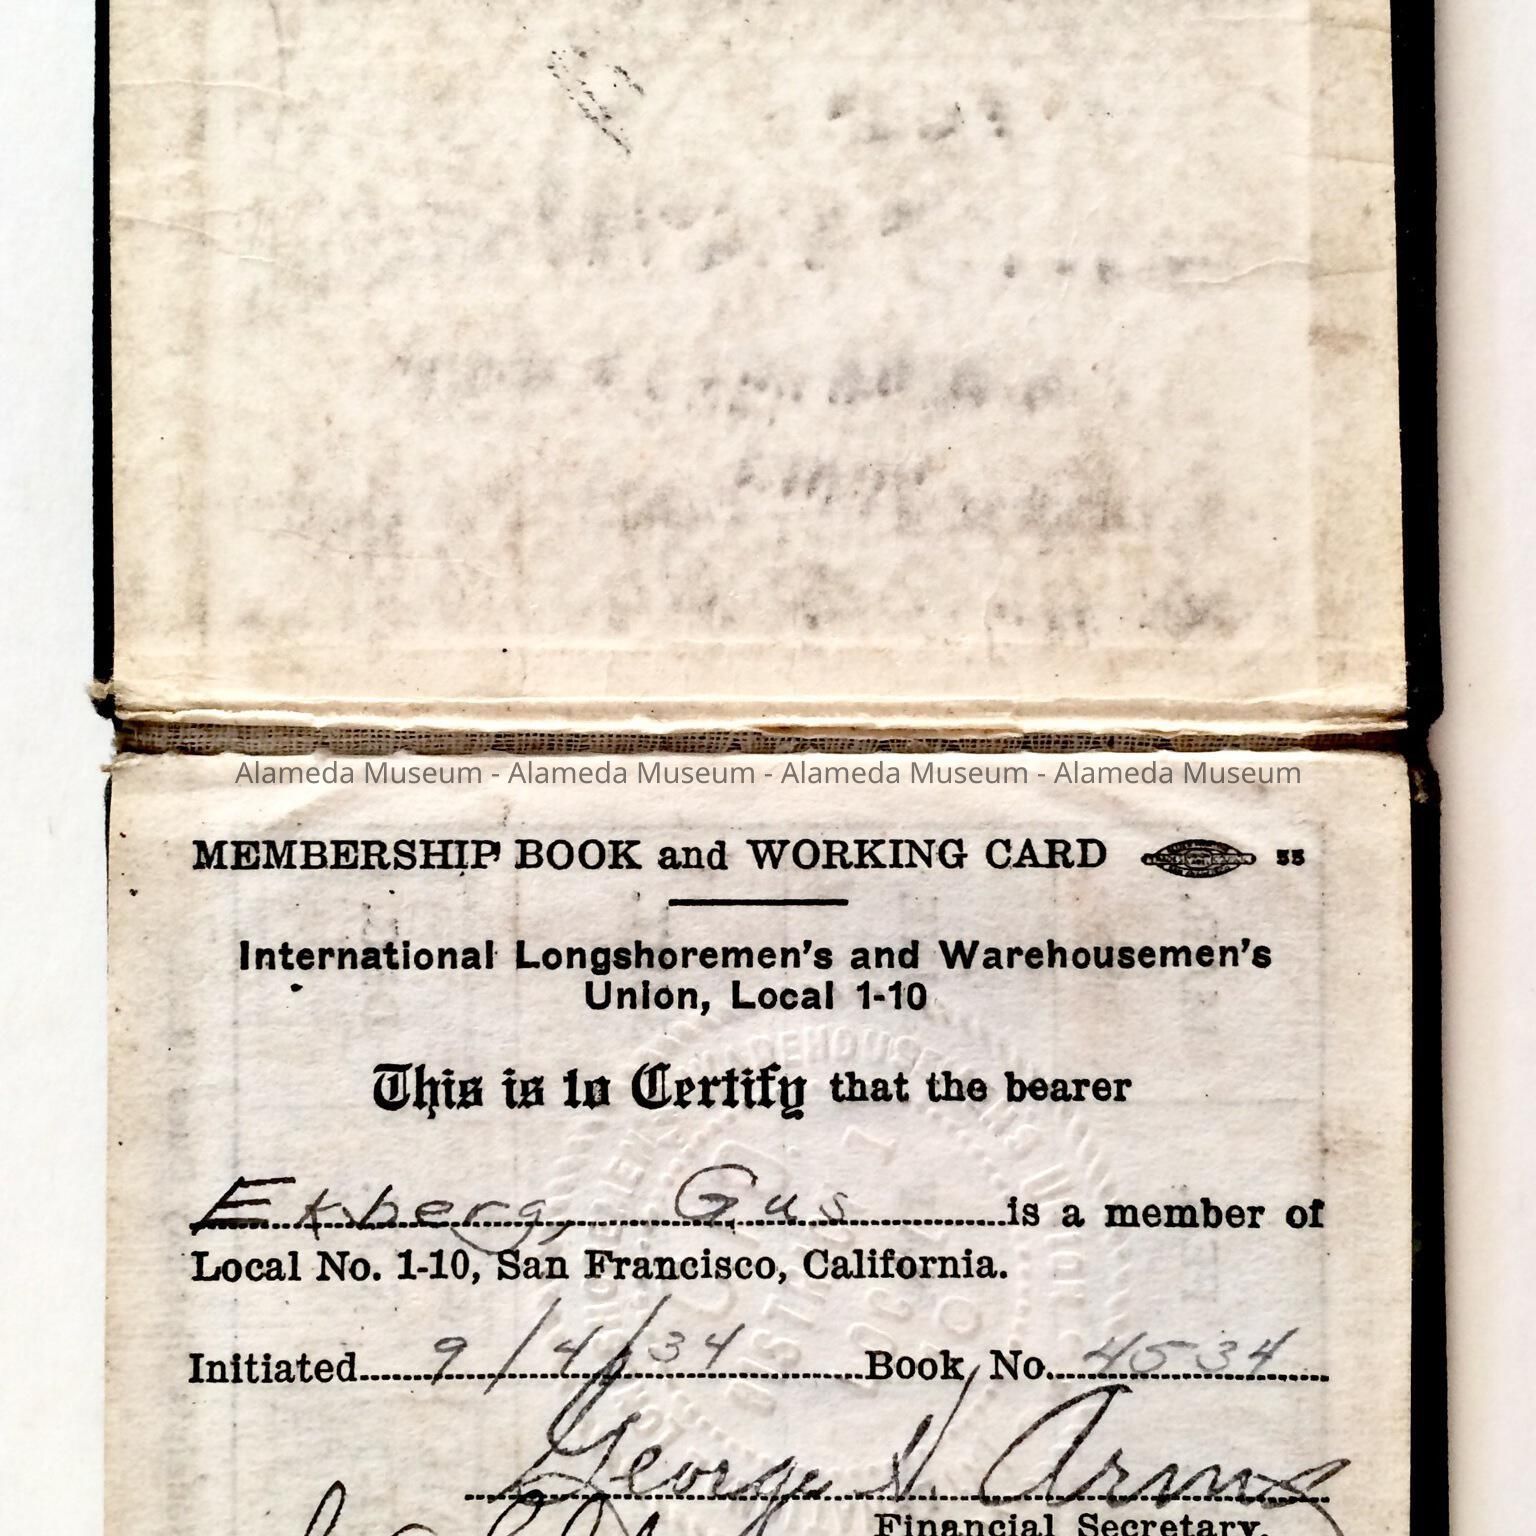 Alameda Museum - Alameda Museum - Alameda Museum - Alameda Museum
MEMBERSHIP BOOK and WORKING CARD 55
International Longshoremen's and Warehousemen's
Union, Local 1-10
This is to Certify that the bearer
Ekberg, Gus is a member of
Local No. 1-10, San Francisco, California.
Initiated 9/4/34 Book No. 4534
George
Financial Secretary.